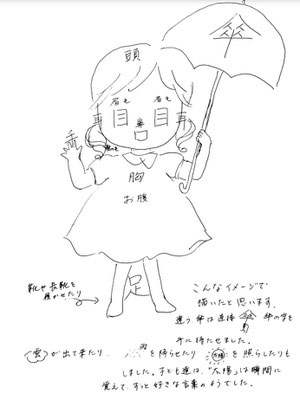 傘
頭
眉毛 眉毛
目 目
鼻
耳 耳
口
手
胸
お腹
足
靴や長靴を
履かせたり
こんなイメージで
描いたと思います。
違う傘は直接 傘 傘の字を
手に持たせました。
雲が出て来たり、雨を降らせたり 太陽を照らしたりも
しました。子ども達は、「太陽」は瞬間に
覚えて、ずっと好きな言葉のようでした。